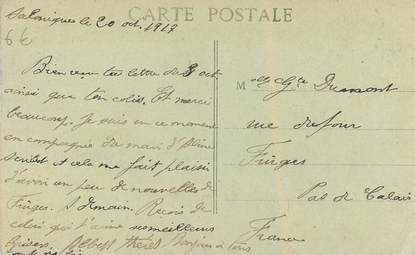 Saloniques le 20 oct. 1917
CARTE POSTALE
6€
Bien reçu ta lettre du 3 oct
ainsi que ton colis. Et merci
beaucoup. Je suis en ce moment
en compagnie du mari d'
et cela me fait plaisir
d'avoir un peu de nouvelles de
Fruges. A demain. Reçois de
celui qui t'aime ses meilleurs
Baisers. Albert Bonjour à tous
M Dumont
rue dufour
Fruges
Pas de Calais
France